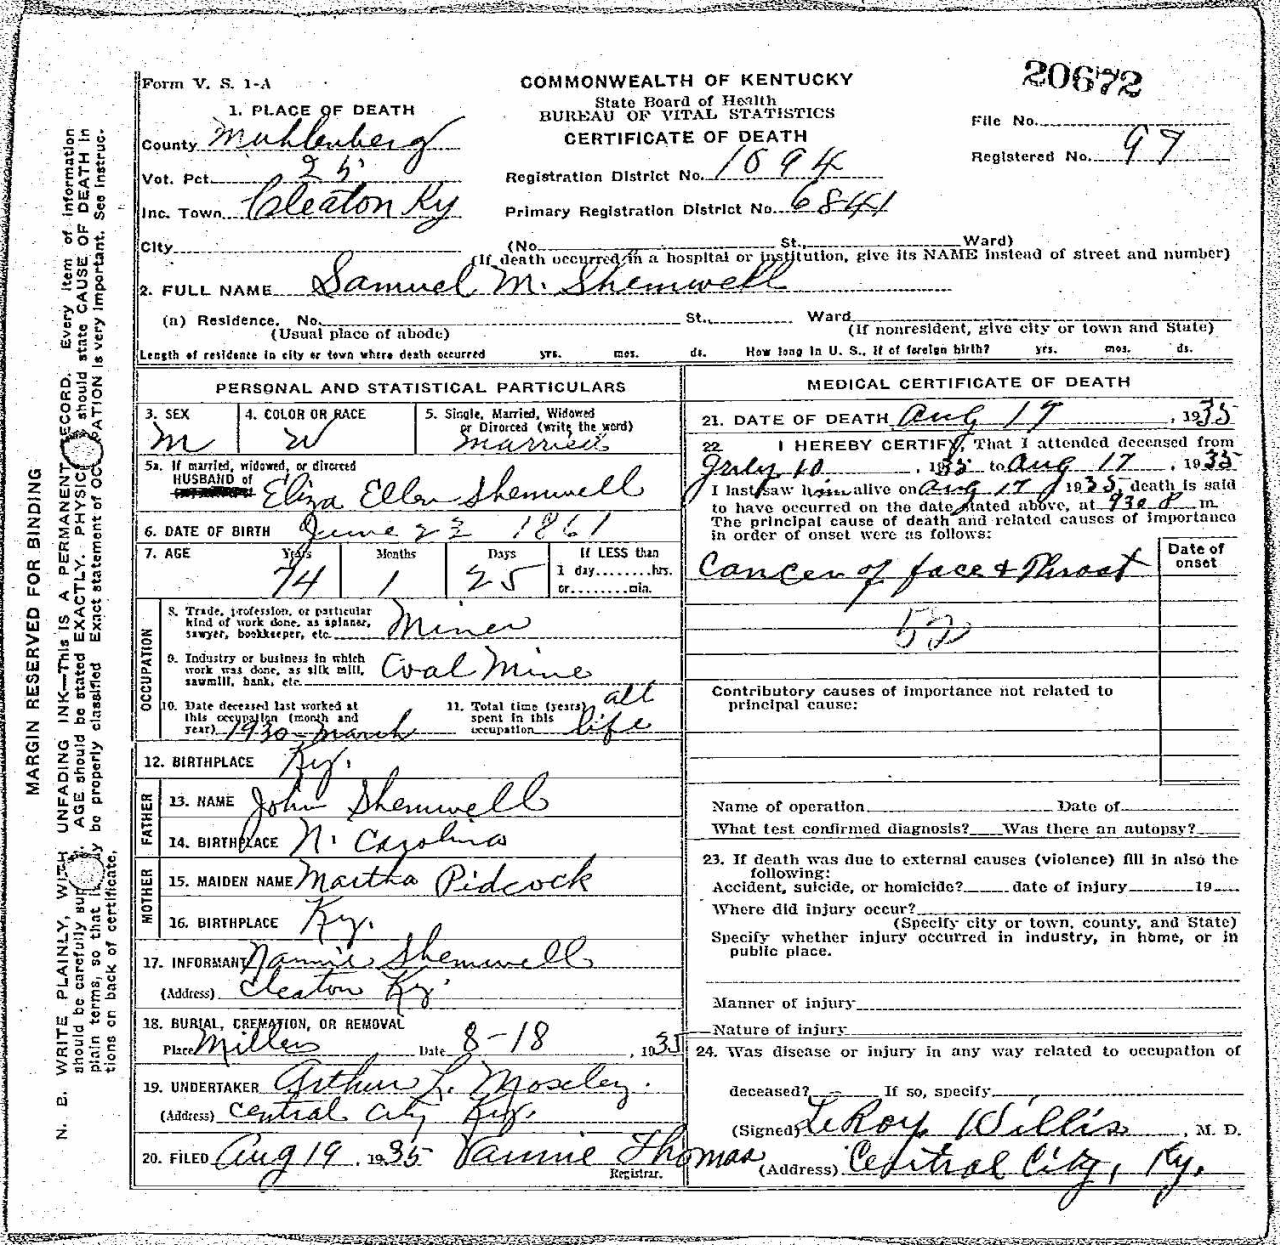 20672
Form V. S. 1-A
COMMONWEALTH OF KENTUCKY
State Board of Health
BUREAU OF VITAL STATISTICS
CERTIFICATE OF DEATH
File No.
Registered No. 97
1. PLACE OF DEATH
County Muhlenberg
Vot. Pct. 25
Inc. Town Cleaton Ky
City
Registration District No. 1094
Primary Registration District No. 6841
(No. St., Ward)
(If death occurred in a hospital or institution, give its NAME instead of street and number)
2. FULL NAME Samuel M. Shemwell
(a) Residence. No. St., Ward
(Usual place of abode) (If nonresident, give city or town and State)
Length of residence in city or town where death occurred yrs. mos. ds. How long in U. S., if of foreign birth? yrs. mos. ds.
PERSONAL AND STATISTICAL PARTICULARS
3. SEX M
4. COLOR OR RACE W
5. Single, Married, Widowed
or Divorced (write the word)
married
5a. If married, widowed, or divorced
HUSBAND of Eliza Ellen Shemwell
6. DATE OF BIRTH June 22 1861
7. AGE Years Months Days If LESS than
74 1 25 1 day........hrs.
or........min.
OCCUPATION
8. Trade, profession, or particular
kind of work done, as spinner,
sawyer, bookkeeper, etc. Miner
9. Industry or business in which
work was done, as silk mill,
sawmill, bank, etc. Coal Mine
10. Date deceased last worked at
this occupation (month and
year) 1930-March
11. Total time (years)
spent in this
occupation all life
12. BIRTHPLACE Ky.
FATHER
13. NAME John Shemwell
14. BIRTHPLACE N. Carolina
MOTHER
15. MAIDEN NAME Martha Pidcock
16. BIRTHPLACE Ky.
17. INFORMANT Nannie Shemwell
(Address) Cleaton Ky.
18. BURIAL, CREMATION, OR REMOVAL
Place Millers Date 8-18, 1935
19. UNDERTAKER Arthur L. Moseley.
(Address) Central City Ky.
20. FILED Aug 19, 1935 Vannie Thomas
Registrar.
MEDICAL CERTIFICATE OF DEATH
21. DATE OF DEATH Aug 17, 1935
22 I HEREBY CERTIFY, That I attended deceased from
July 10, 1935 to Aug 17, 1935
I last saw him alive on Aug 17 1935, death is said
to have occurred on the date stated above, at 930 P m.
The principal cause of death and related causes of importance
in order of onset were as follows:
Date of
onset
Cancer of face & Throat
52
Contributory causes of importance not related to
principal cause:
Name of operation Date of
What test confirmed diagnosis? Was there an autopsy?
23. If death was due to external causes (violence) fill in also the
following:
Accident, suicide, or homicide? date of injury 19
Where did injury occur?
(Specify city or town, county, and State)
Specify whether injury occurred in industry, in home, or in
public place.
Manner of injury
Nature of injury
24. Was disease or injury in any way related to occupation of
deceased? If so, specify
(Signed) LeRoy Willis, M. D.
(Address) Central City, Ky.
MARGIN RESERVED FOR BINDING
N. B. WRITE PLAINLY, WITH UNFADING INK—This is A PERMANENT RECORD. Every item of information
should be carefully AGE should be stated EXACTLY. should state CAUSE OF DEATH in
plain terms, so that be properly classified Exact statement of is very important. See instruc-
tions on back of certificate.